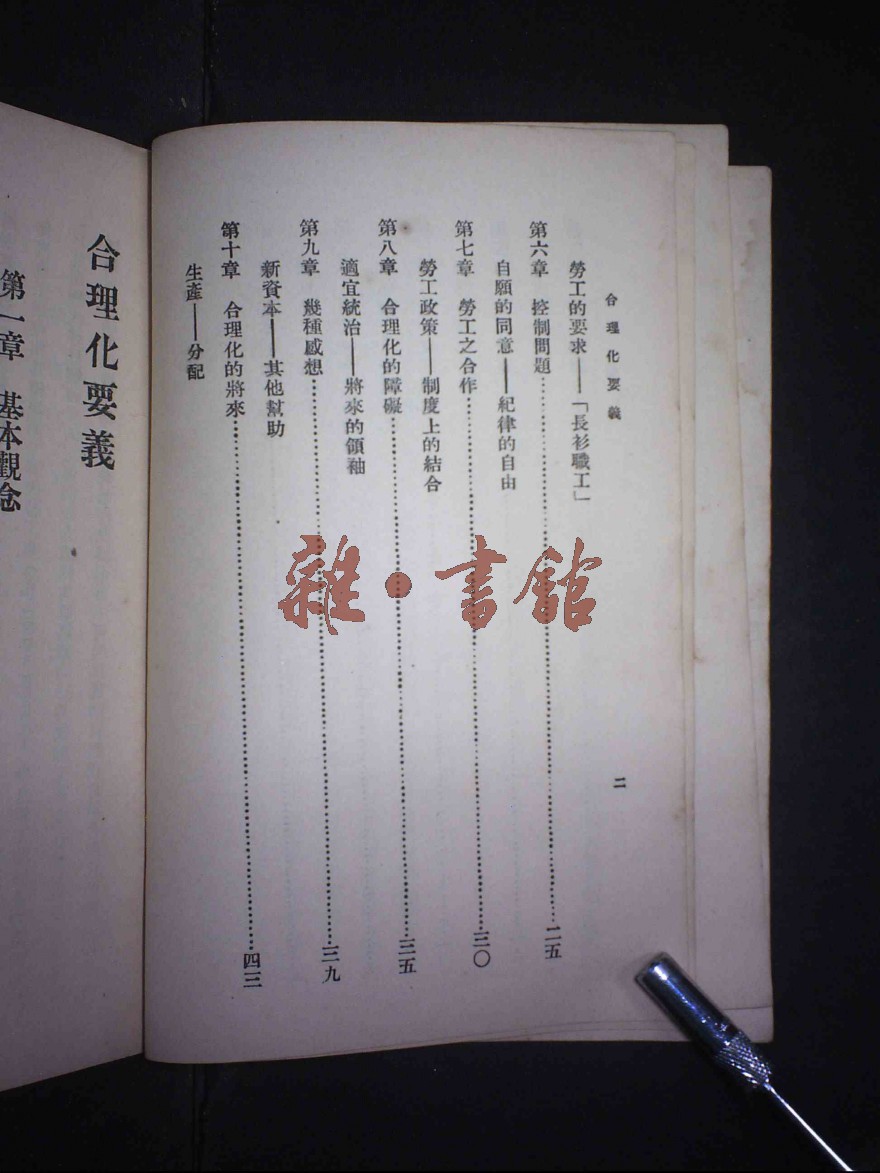 合理化要義
二
勞工的要求——「長衫職工」
第六章　控制問題…………二五
自願的同意——紀律的自由
第七章　勞工之合作…………三〇
勞工政策——制度上的結合
第八章　合理化的障礙…………三五
適宜統治——將來的領袖
第九章　幾種感想…………三九
新資本——其他幫助
第十章　合理化的將來…………四三
生產——分配
合理化要義
第一章　基本觀念
雜·書館